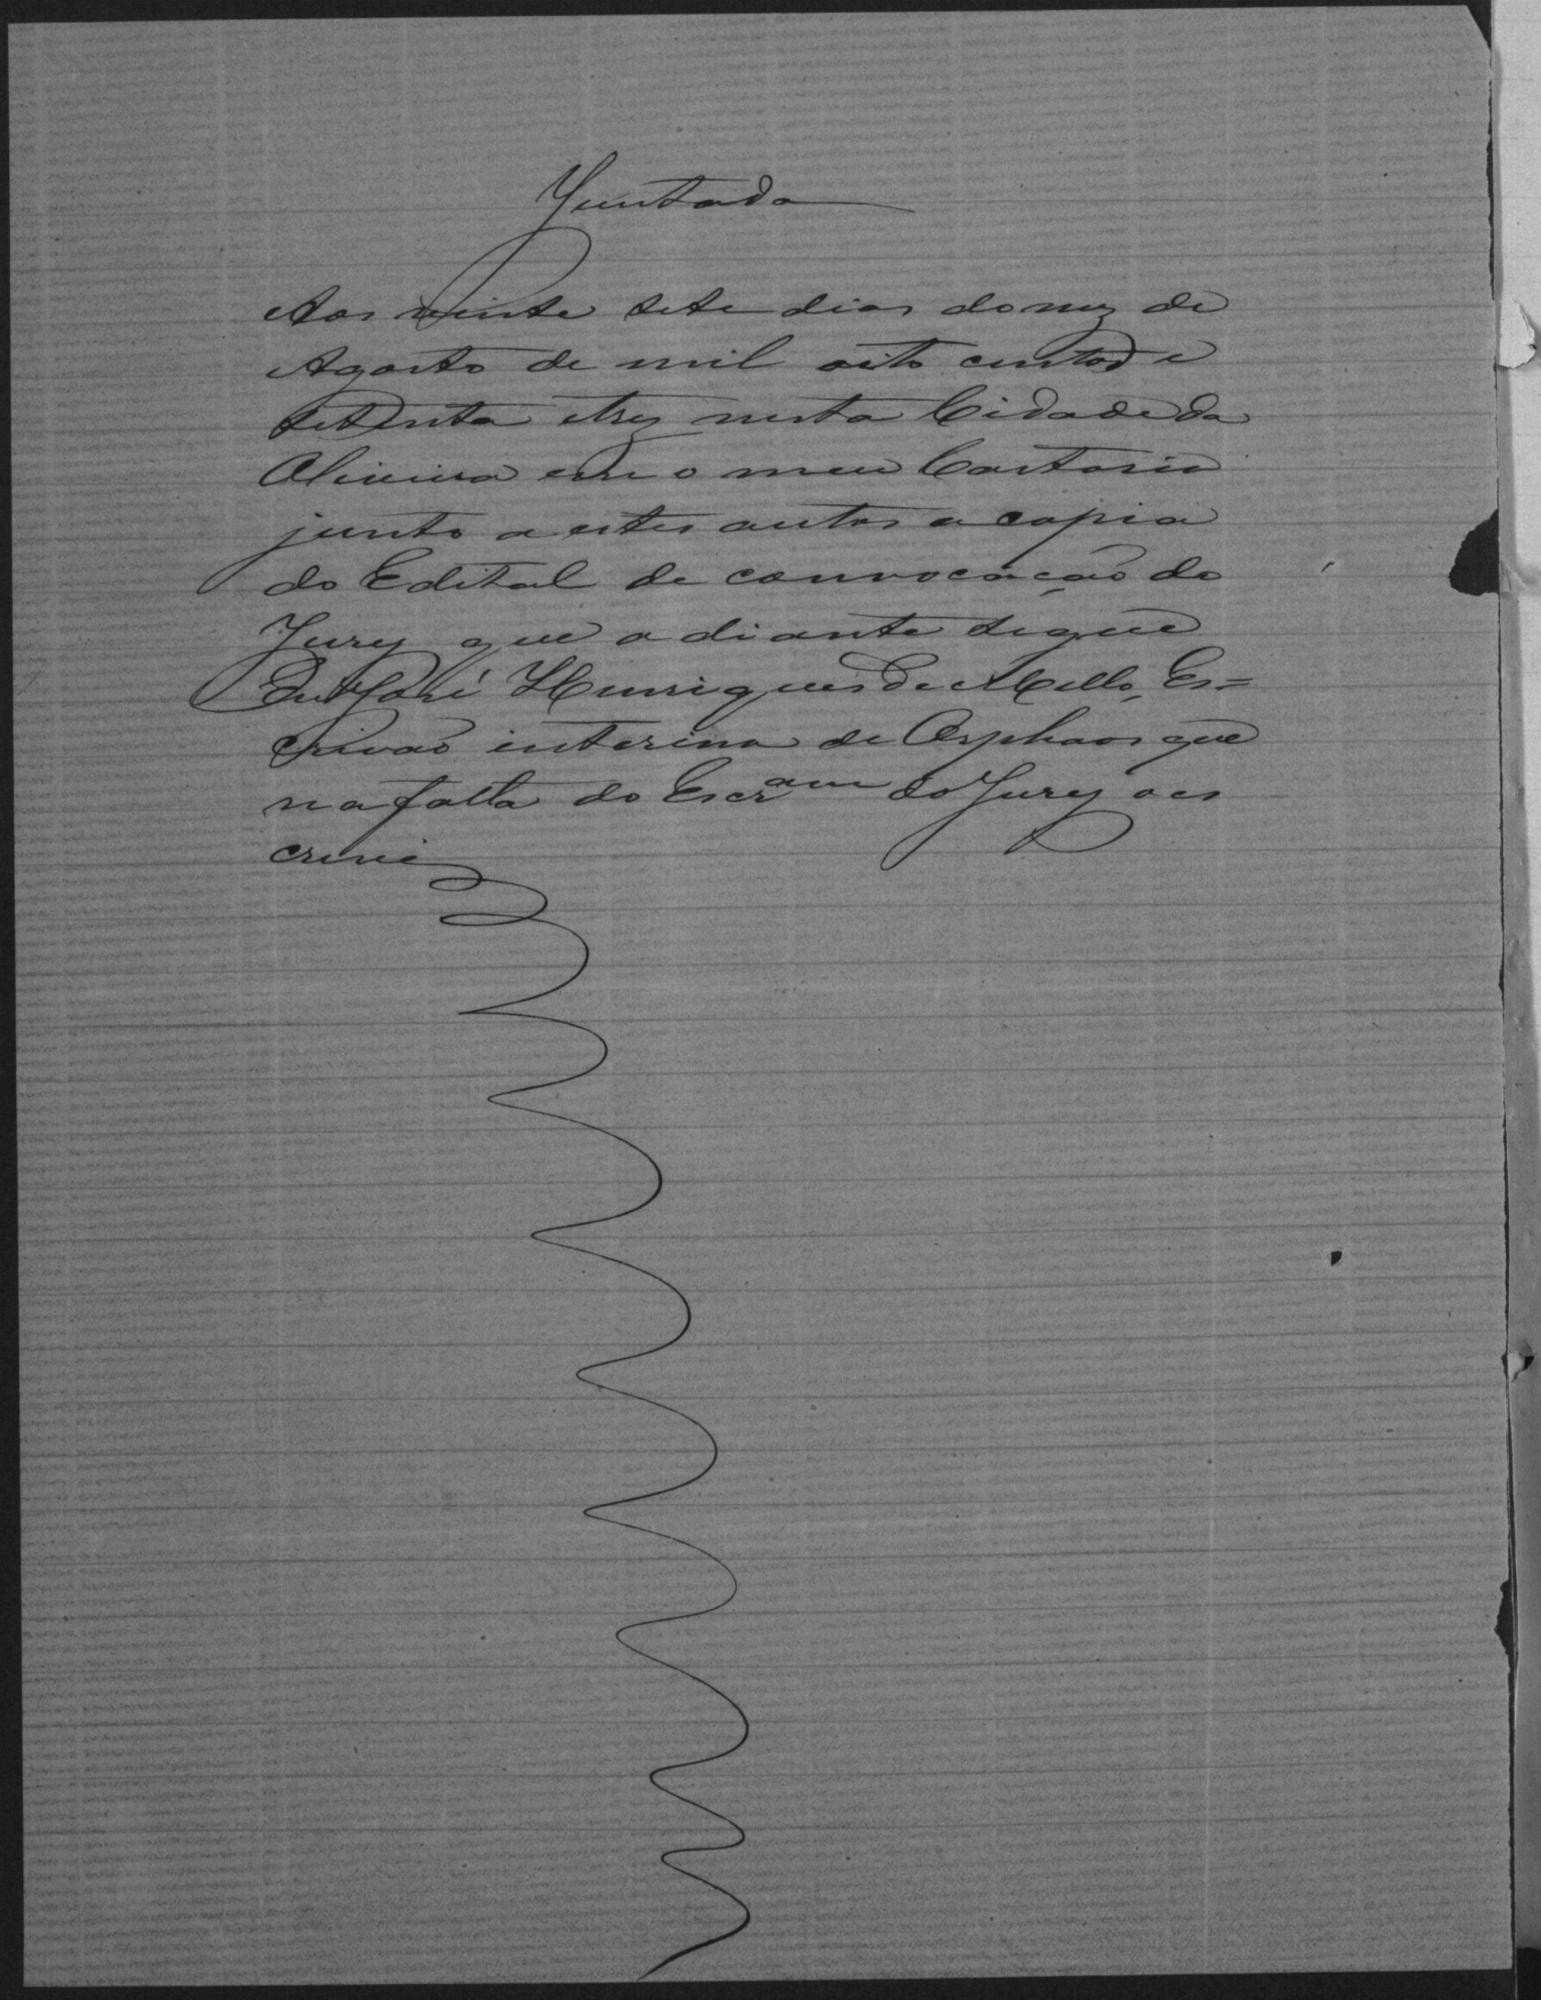 Juntada
Aos vinte sete dias do mez de
Agosto de mil oito centos e
setenta e trez nesta Cidade da
Oliveira em o meu Cartorio
junto a estes autos a copia
do Edital de convocação do
Jury que a diante segue
Eu José Henriques de Mello, Es=
crivaõ interino de Orphaos que
na falta do Escram do Jury o es
crivi